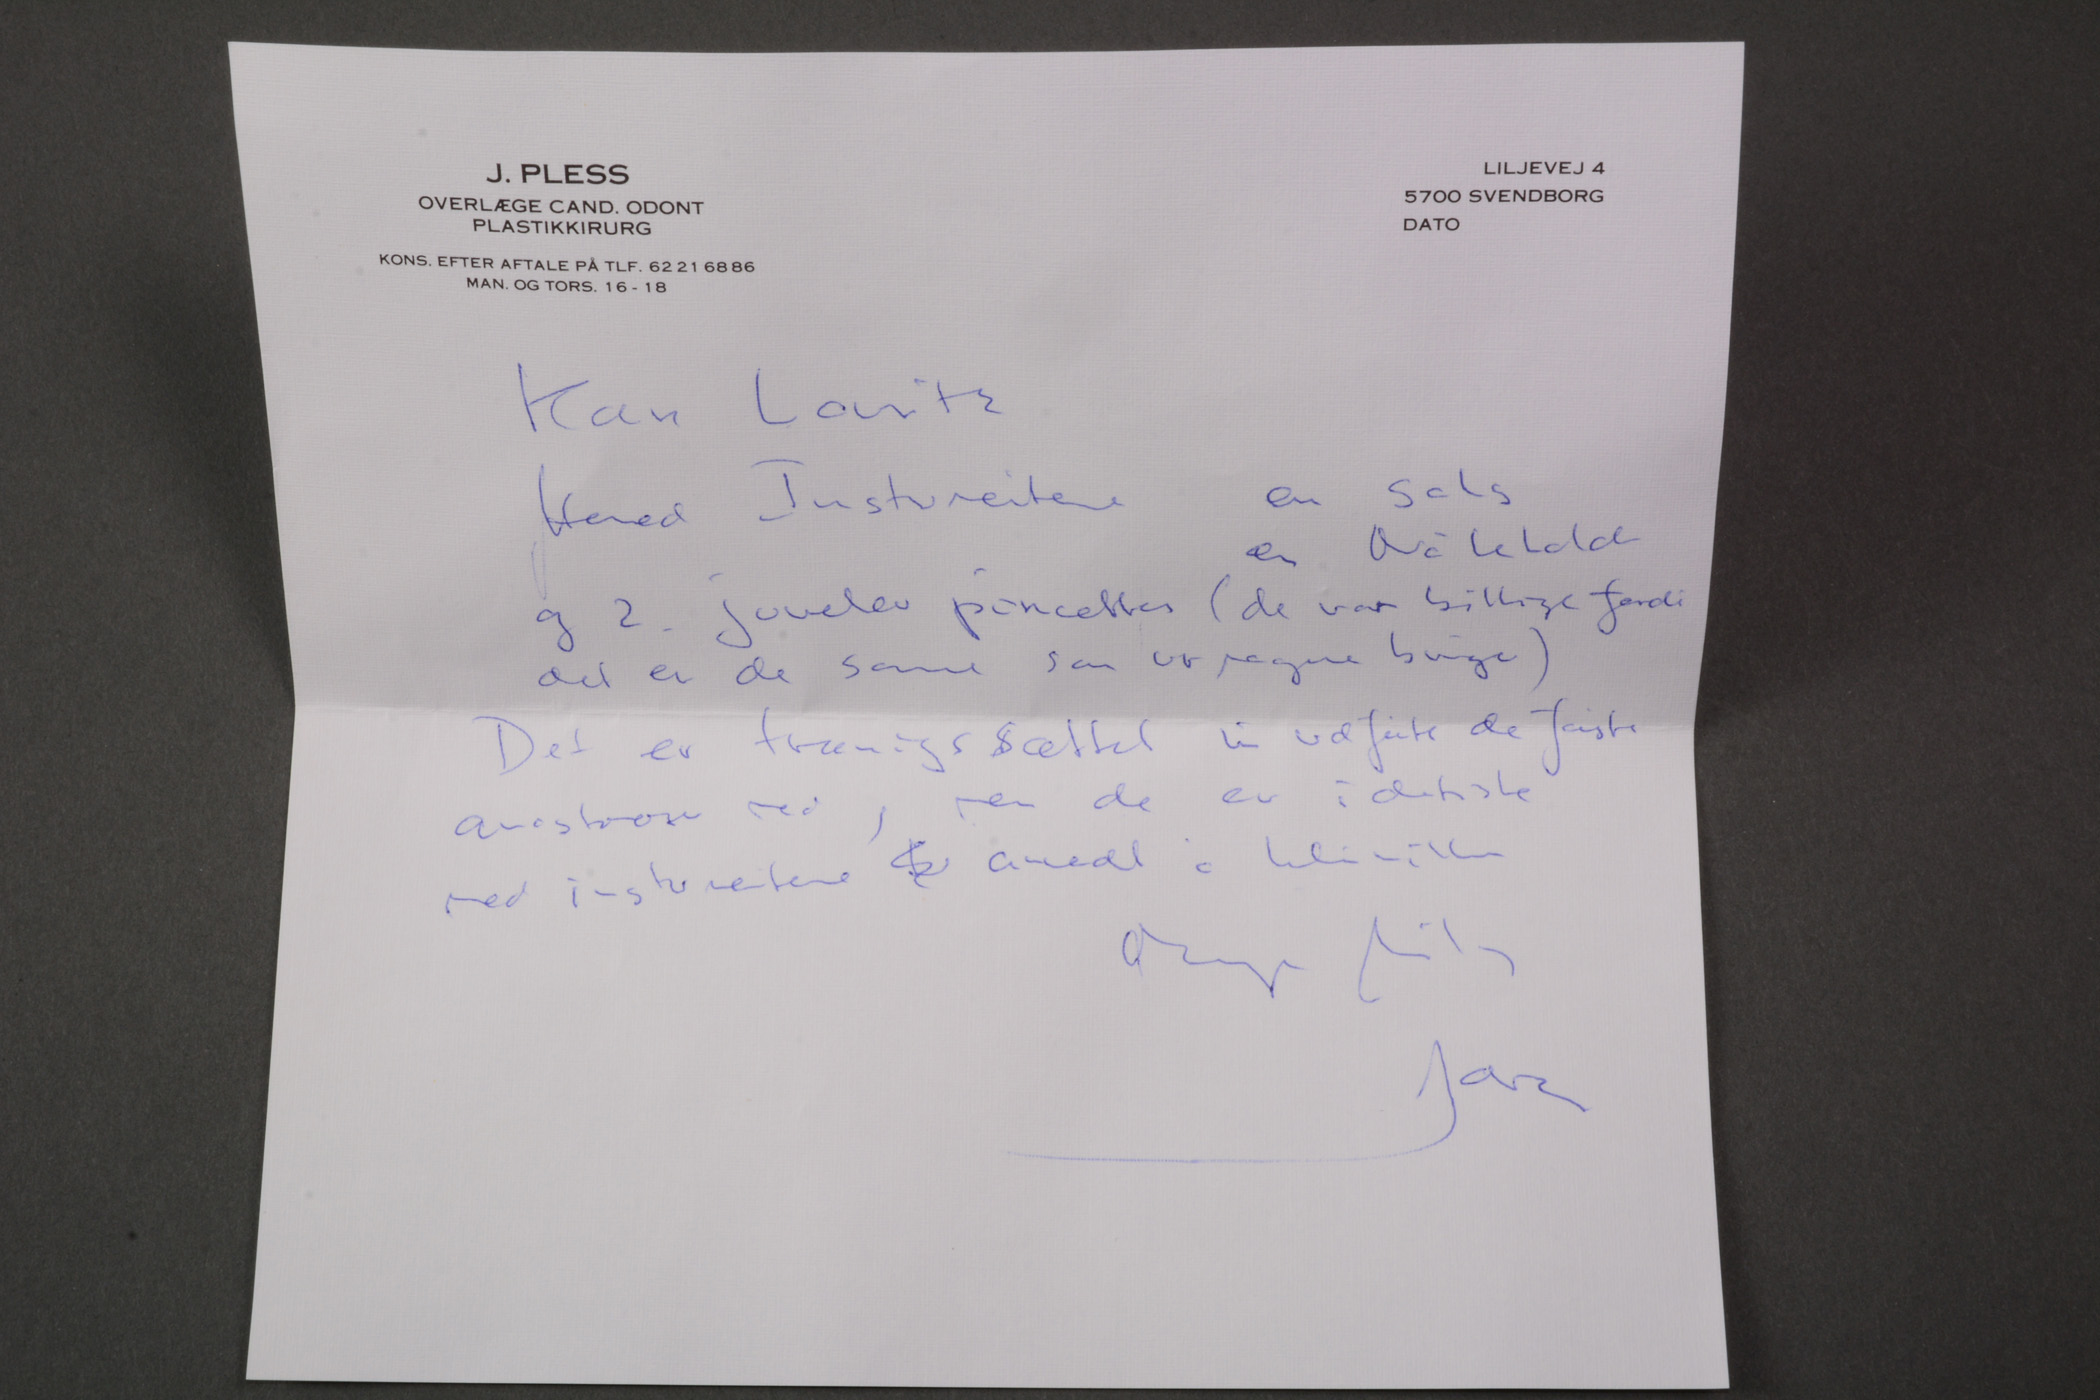 J. PLESS
OVERLÆGE CAND. ODONT
PLASTIKKIRURG
KONS. EFTER AFTALE PÅ TLF. 62 21 68 86
MAN. OG TORS. 16 - 18
LILJEVEJ 4
5700 SVENDBORG
DATO
Kære Lauritz
Hermed Instrumenterne en saks
en Nåleholder
og 2. juveler pincetter (de var billige fordi
det er de samme som urmagerne bruger)
Det er træningssættet vi udførte de første
anastomoser med, men de er identiske
med instrumenterne anvendt i klinikken
Mange hilsner